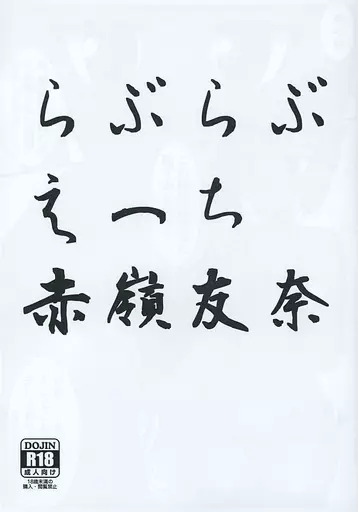 らぶらぶ
えっち
赤嶺友奈
DOJIN
R18
成人向け
18歳未満の
購入・閲覧禁止